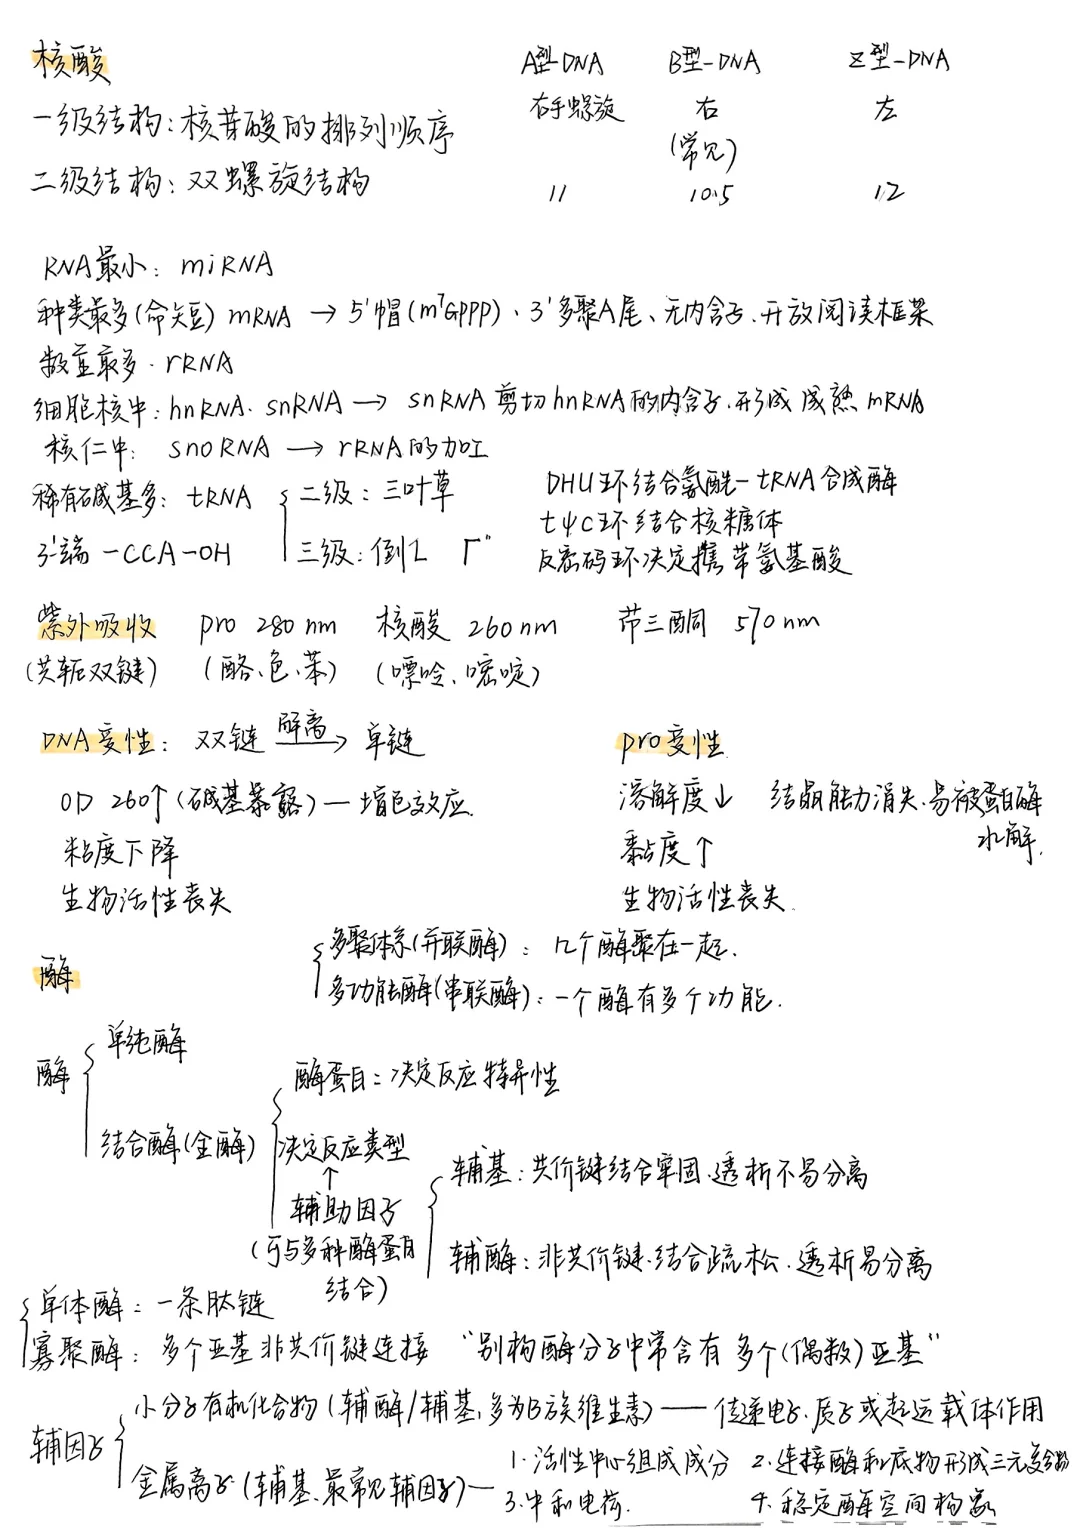 核酸
A型-DNA B型-DNA Z型-DNA
一级结构：核苷酸的排列顺序
右手螺旋 右 左
(常见)
二级结构：双螺旋结构
11 10.5 12
RNA最小：miRNA
种类最多(命短) mRNA → 5'帽(m⁷GPPP)、3'多聚A尾、无内含子、开放阅读框架
数量最多·rRNA
细胞核中：hnRNA、snRNA → snRNA剪切hnRNA的内含子.形成成熟mRNA
核仁中：snoRNA → rRNA的加工
稀有碱基多：tRNA { 二级：三叶草
3'端-CCA-OH 三级：倒L Γ"
DHU环结合氨酰-tRNA合成酶
tψC环结合核糖体
反密码环决定携带氨基酸
紫外吸收 pro 280nm 核酸 260nm 茚三酮 570nm
(共轭双键) (酪、色、苯) (嘌呤、嘧啶)
DNA变性：双链 解离→ 单链
OD 260↑(碱基暴露)—增色效应.
粘度下降
生物活性丧失
pro变性
溶解度↓ 结晶能力消失.易被蛋白酶
水解.
黏度↑
生物活性丧失.
酶
{ 多聚体系(并联酶)：几个酶聚在一起.
多功能酶(串联酶)：一个酶有多个功能.
酶 { 单纯酶
结合酶(全酶) { 酶蛋白：决定反应特异性
决定反应类型
↑
辅助因子
(可与多种酶蛋白
结合)
{ 辅基：共价键结合牢固.透析不易分离
辅酶：非共价键.结合疏松.透析易分离
{ 单体酶：一条肽链
寡聚酶：多个亚基非共价键连接 "别构酶分子中常含有多个(偶数)亚基"
辅因子 { 小分子有机化合物(辅酶/辅基,多为B族维生素)——传递电子.质子或起运载体作用
金属离子(辅基.最常见辅因子)— 1.活性中心组成成分 2.连接酶和底物形成三元复合物
3.中和电荷. 4.稳定酶空间构象